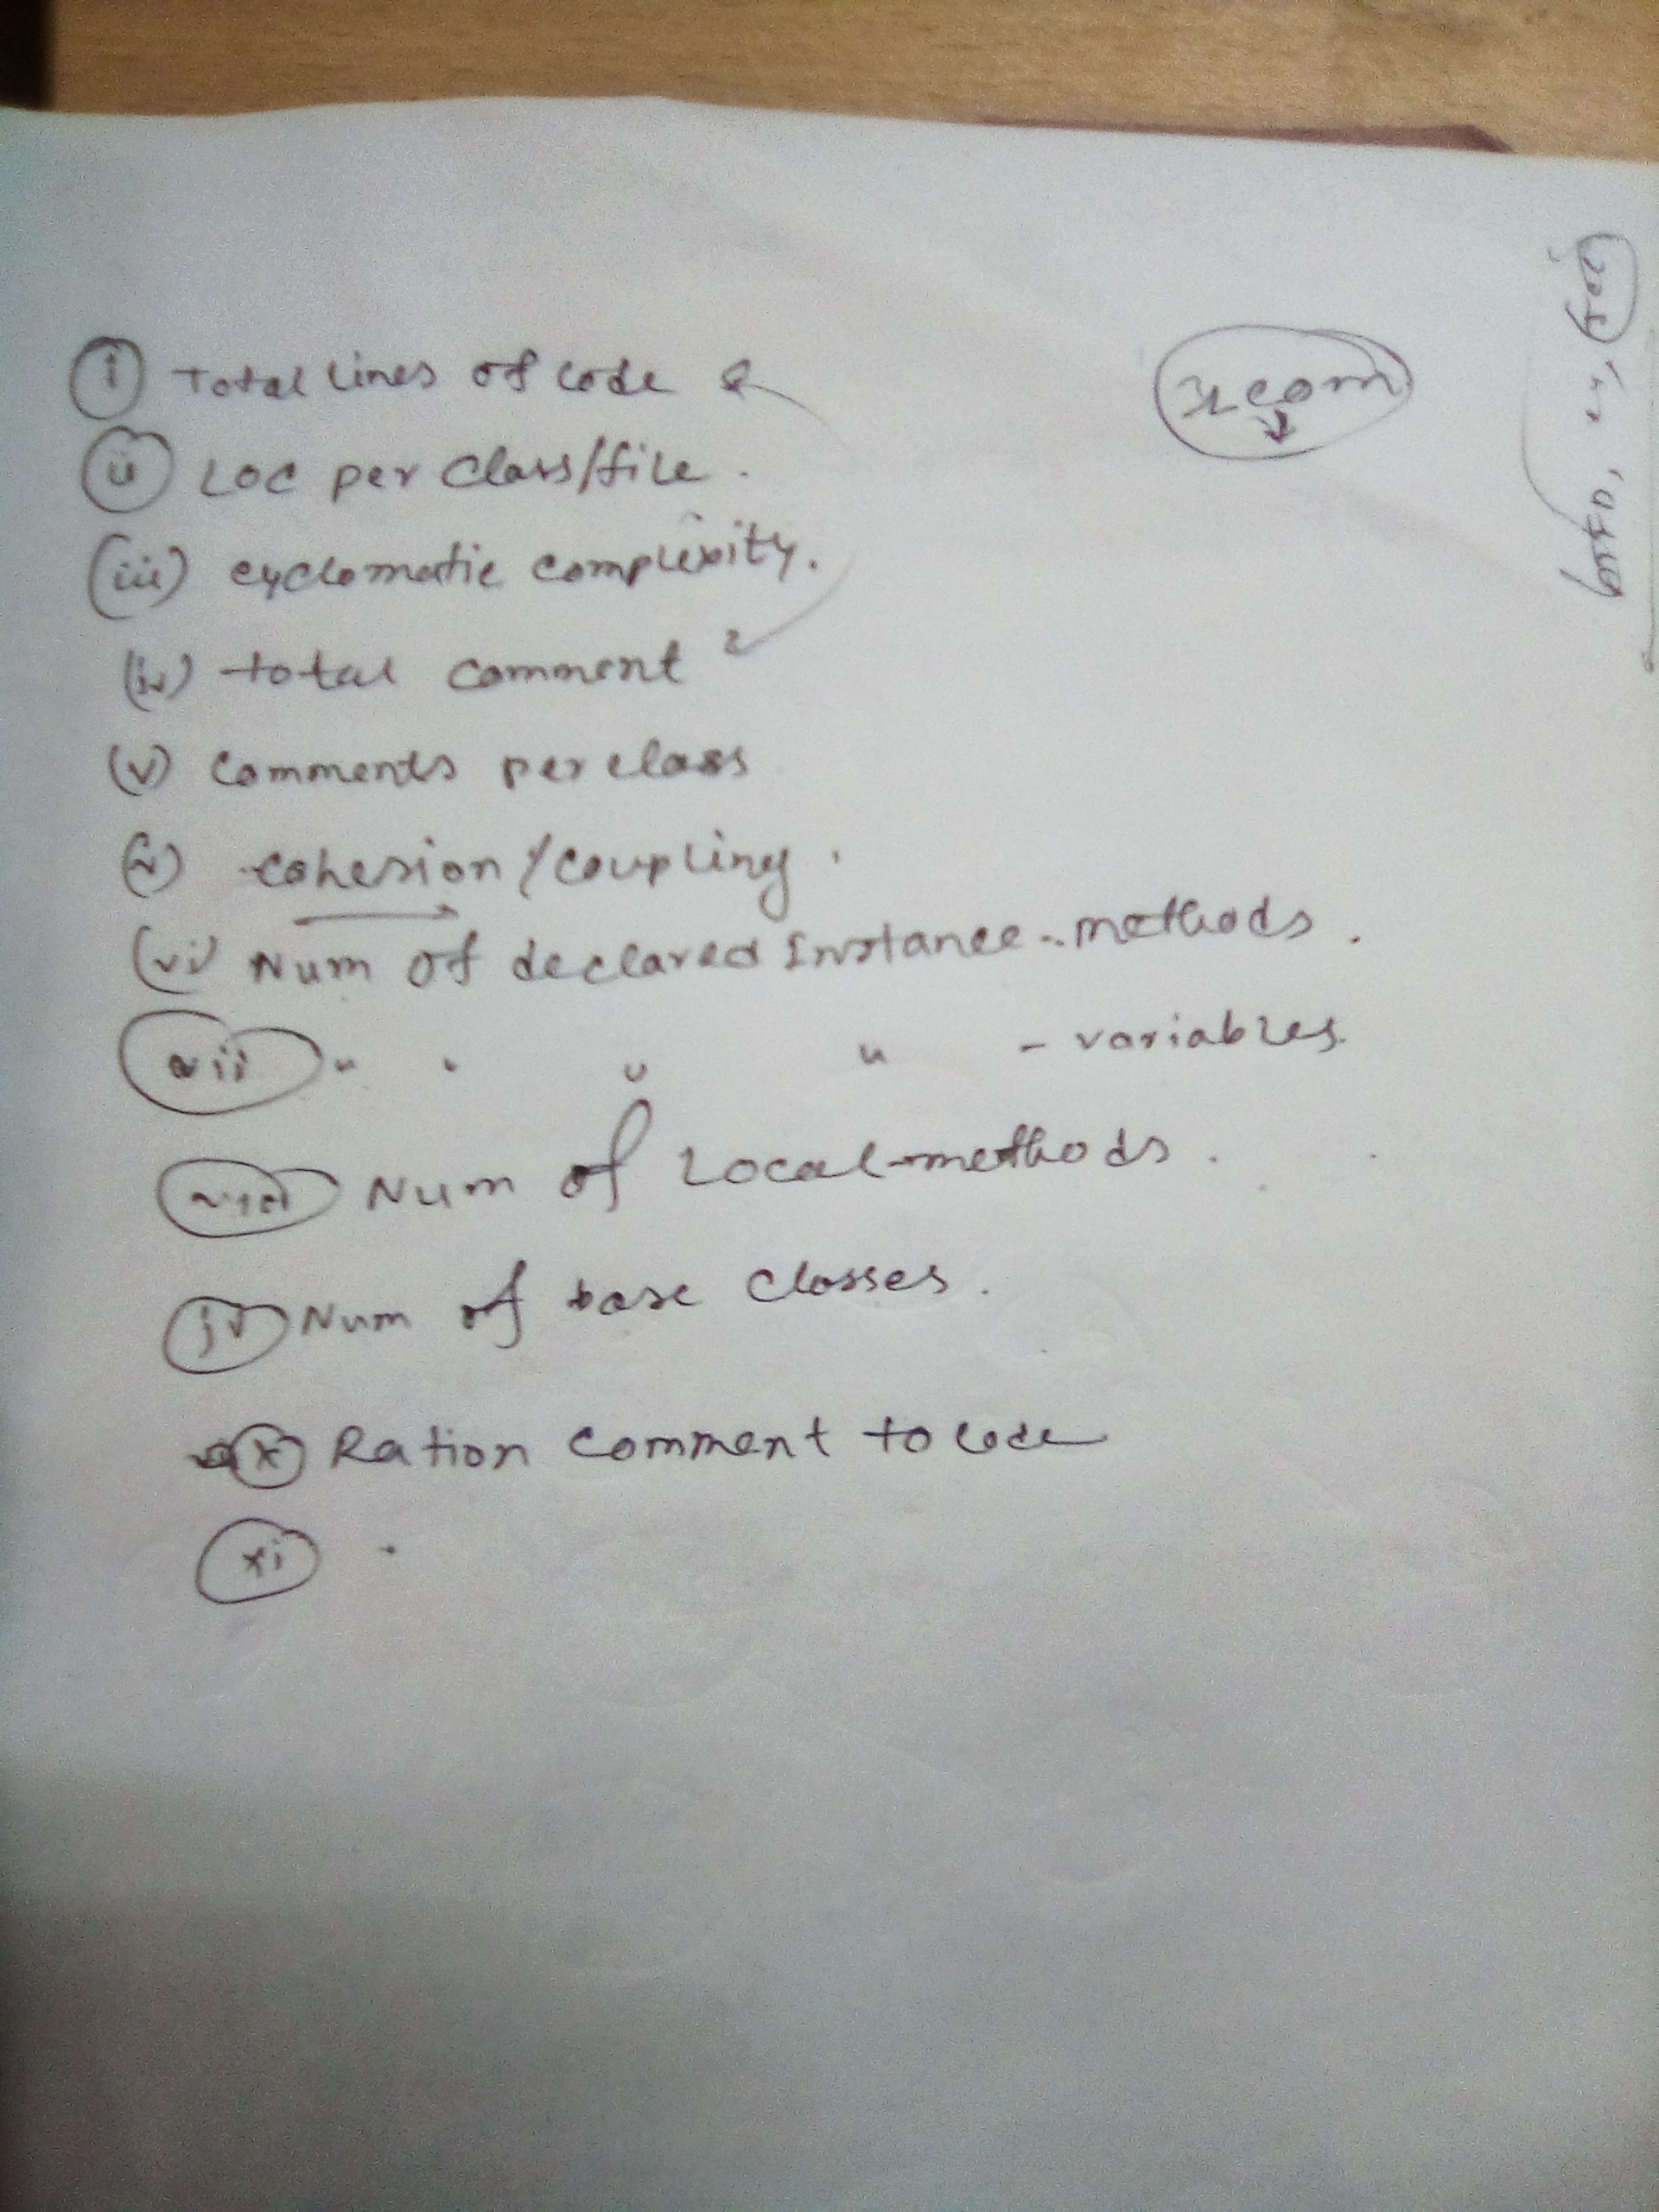 (i) Total Lines of Code
(ii) LOC per Class/file.
(iii) cyclomatic complexity.
(iv) total comment
(v) comments per class
(v) cohesion/coupling.
(vi) Num of declared Instance-methods.
vii " " " " - variables.
viii Num of Local-methods.
ix Num of base Classes.
x Ration comment to Code
xi